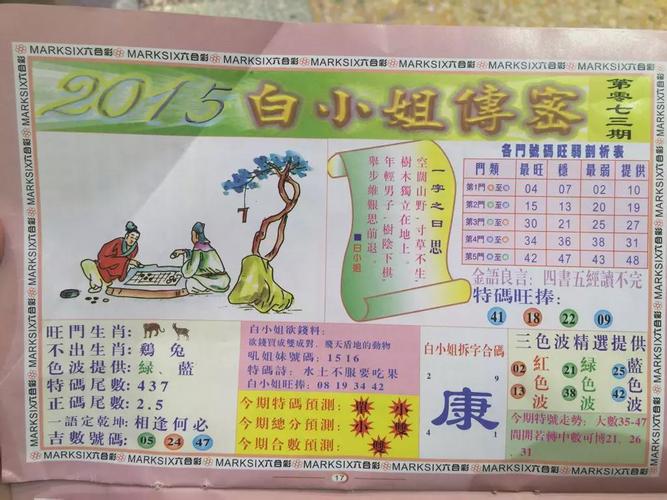 MARKSIX六合彩 MARKSIX六合彩 MARKSIX六合彩 MARKSIX六合彩 MARKSIX六合彩 MARKSIX六合彩
2015 白小姐傳密
第零七三期
一字之曰思
空闊山野,寸草不生
樹木獨立在地上。
年輕男子,樹陰下棋
舉步維艱思前退。
■白小姐
各門號碼旺弱剖析表
門類 最旺 穩 最弱 提供
第1門 至 04 07 02 10
第2門 至 15 13 20 19
第3門 至 30 21 25 27
第4門 至 34 36 38 31
第5門 至 42 47 43 48
金語良言: 四書五經讀不完
特碼旺捧:
41 18 22 09
旺門生肖:
不出生肖: 鷄 兔
色波提供: 綠、藍
特碼尾數: 437
正碼尾數: 2.5
一語定乾坤: 相逢何必
吉數號碼: 05 24 47
白小姐欲錢料:
欲錢買成雙成對、飛天盾地的動物
吼姐妹號碼: 1516
特碼詩: 水上不服要吃果
白小姐旺捧: 08 19 34 42
今期特碼預測: 單 小
今期總分預測: 小 雙
今期合數預測: 雙
白小姐拆字合碼
2 9
康
4 1
三色波精選提供
02 13 紅色波
21 38 綠色波
25 42 藍色波
今期特號走勢: 大數35-47
間開若轉中數可博21、26
、31
MARKSIX六合彩 MARKSIX六合彩 MARKSIX六合彩 MARKSIX六合彩 MARKSIX六合彩 MARKSIX六合彩
17